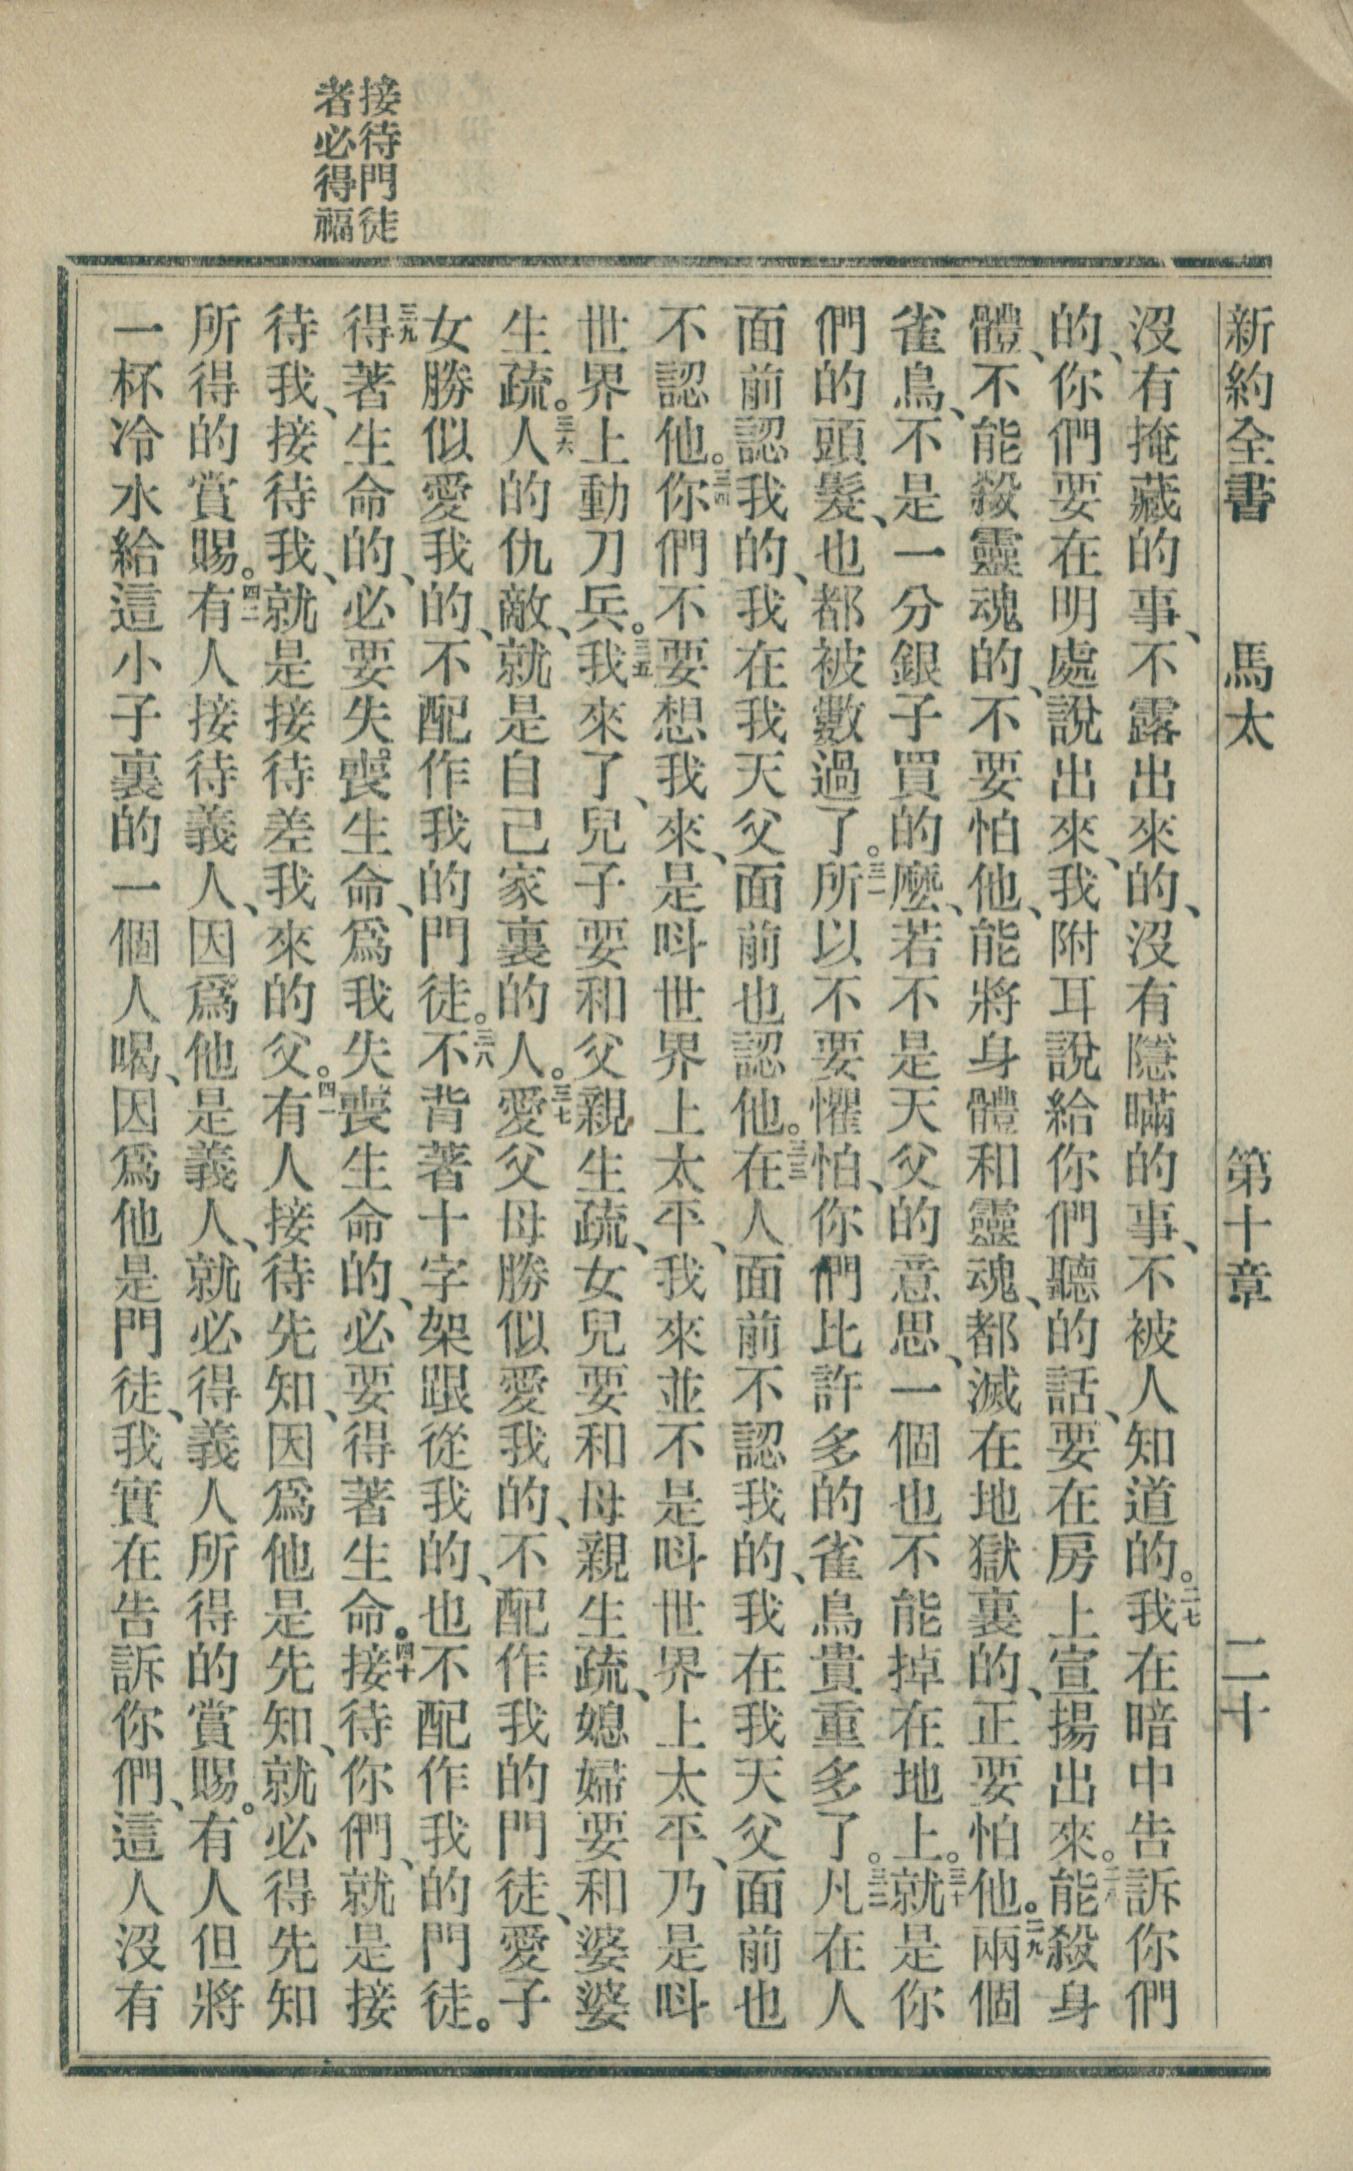 新約全書 馬太 第十章 二十
沒有掩藏的事、不露出來的、沒有隱瞞的事、不被人知道的。二七我在暗中告訴你們
的、你們要在明處說出來、我附耳說給你們聽的話、要在房上宣揚出來。二八能殺身
體、不能殺靈魂的、不要怕他、能將身體和靈魂、都滅在地獄裏的、正要怕他。二九兩個
雀鳥、不是一分銀子買的麼、若不是天父的意思、一個也不能掉在地上。三十就是你
們的頭髮、也都被數過了。三一所以不要懼怕、你們比許多的雀鳥貴重多了。三二凡在人
面前認我的、我在我天父面前也認他。三三在人面前不認我的、我在我天父面前也
不認他。三四你們不要想我來、是呌世界上太平、我來並不是呌世界上太平、乃是呌
世界上動刀兵。三五我來了、兒子要和父親生疏、女兒要和母親生疏、媳婦要和婆婆
生疏。三六人的仇敵、就是自己家裏的人。三七愛父母勝似愛我的、不配作我的門徒、愛子
女勝似愛我的、不配作我的門徒。三八不背著十字架跟從我的、也不配作我的門徒。
三九得著生命的、必要失喪生命、爲我失喪生命的、必要得著生命。四十接待你們、就是接
待我、接待我、就是接待差我來的父。四一有人接待先知、因爲他是先知、就必得先知
所得的賞賜。四二有人接待義人、因爲他是義人、就必得義人所得的賞賜。有人但將
一杯冷水給這小子裏的一個人喝、因爲他是門徒、我實在告訴你們、這人沒有
接待門徒
者必得福